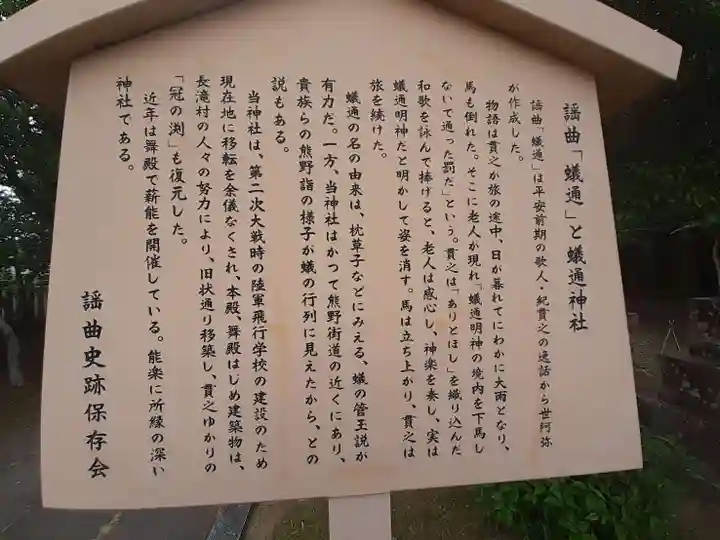 謡曲「蟻通」と蟻通神社
謡曲「蟻通」は平安前期の歌人・紀貫之の逸話から世阿弥
が作成した。
物語は貫之が旅の途中、日が暮れてにわかに大雨となり、
馬も倒れた。そこに老人が現れ「蟻通明神の境内を下馬し
ないで通った罰だ」という。貫之は「ありとほし」を織り込んだ
和歌を詠んで捧げると、老人は感心し、神楽を奏し、実は
蟻通明神だと明かして姿を消す。馬は立ち上がり、貫之は
旅を続けた。
蟻通の名の由来は、枕草子などにみえる、蟻の管玉説が
有力だ。一方、当神社はかつて熊野街道の近くにあり、
貴族らの熊野詣の様子が蟻の行列に見えたから、との
説もある。
当神社は、第二次大戦時の陸軍飛行学校の建設のため
現在地に移転を余儀なくされ、本殿、舞殿はじめ建築物は、
長滝村の人々の努力により、旧状通り移築し、貫之ゆかりの
「冠の渕」も復元した。
近年は舞殿で薪能を開催している。能楽に所縁の深い
神社である。
謡曲史跡保存会